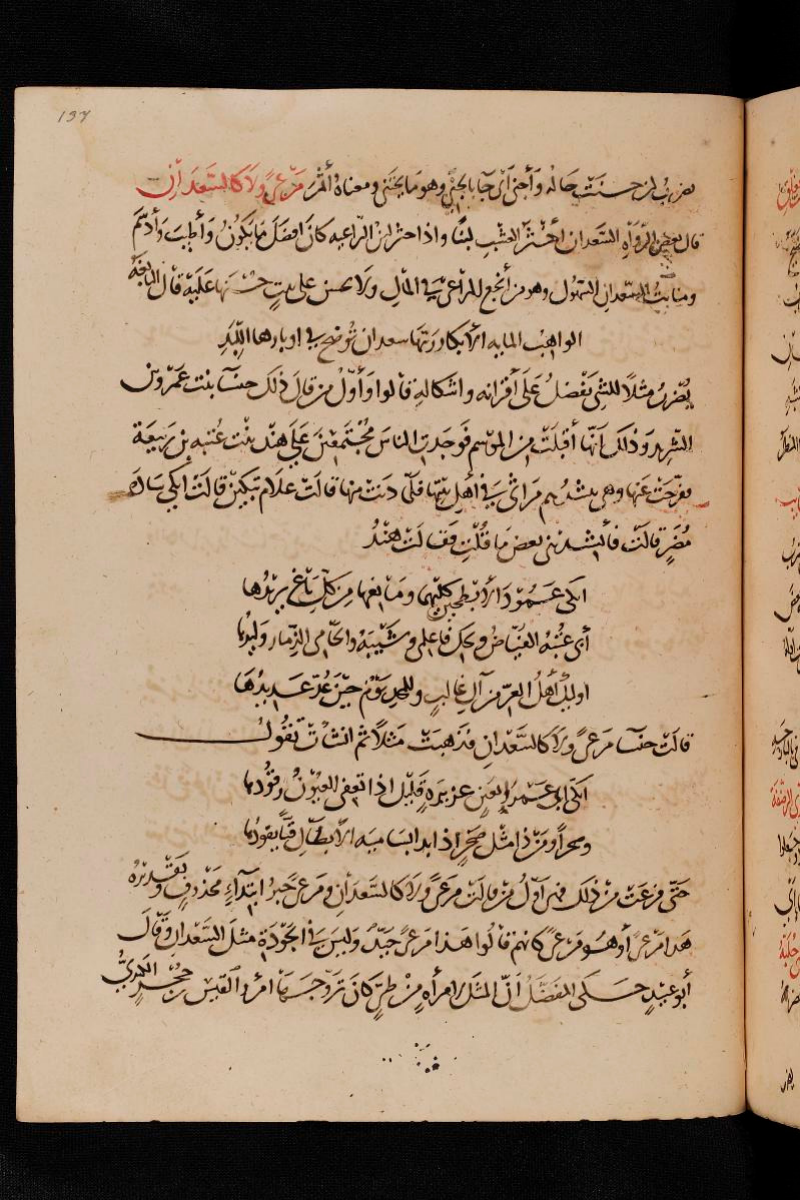 137
يضرب لمن حسنت حاله وأجنى أى جا بالجنى وهو ما يجتنى ومعناه أثمر مرعى ولا كالسعدان
قال بعض الرواه السعدان أخثر العشب لبنا واذا خثر لبن الراعيه كان افضل ما يكون وأطيب وأدسم
ومنابت السعدان السهول وهو من أنجع المراعى فى المال ولا تحسن على نبت حسنها عليه قال النابغة
الواهب المايه الابكار زينها سعدان توضح فى اوبارها اللبد
يضرب مثلا للشى يفضل على أقرانه واشكاله قالوا وأول من قال ذلك خنسا بنت عمرو بن
الشريد وذلك أنها أقبلت من الموسم فوجدت الناس مجتمعين على هند بنت عتبه بن ربيعة
ففرجت عنها وهى تنشدهم مراثى فى أهل بيتها فلما دنت منها قالت علام تبكين قالت ابكى سادة
مضر قالت فأنشدينى بعض ما قلت فقالت هند
ابكى عمود الابطحين كليهما ومانعها من كل باغ يريدها
أبى عتبة الفياض ويحك فاعلمى وشيبة والحامى الذمار وليدها
اوليك أهل العز من آل غالب وللمجد يوم حين عد عديدها
قالت خنسا مرعى ولا كالسعدان فذهبت مثلا ثم انشأت تقول
ابكى ابى عمرا بعين غزيرة قليل اذا تغفى العيون رقودها
وصخرا ومن ذا مثل صخر اذا بدا بساهمة الابطال قبا يقودها
حتى فرغت من ذلك فهى أول من قالت مرعى ولا كالسعدان ومرعى خبر ابتداء محذوف وتقديره
هذا مرعى أو هو مرعى كانهم قالوا هذا مرعى جيد وليس فى الجودة مثل السعدان وقال
أبو عبيد حكى المفضل ان المثل لامرأه من طى كان تزوجها امرؤ القيس بن حجر الكندى